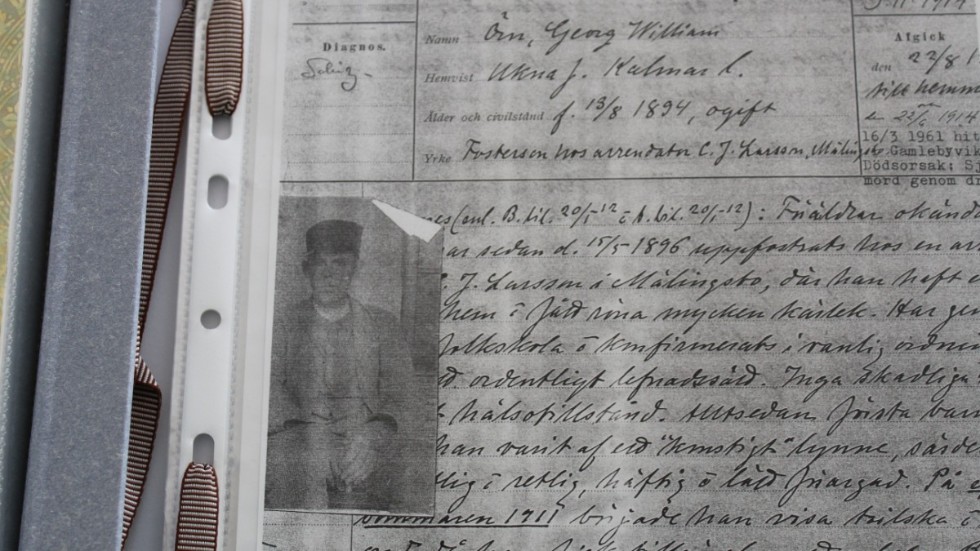 5-11-1914
Diagnos.
Schiz-
Namn Örn, Georg William
Hemvist Ukna f. Kalmar l.
Ålder och civilstånd f. 13/8 1894, ogift
Yrke Fosterson hos arrendator C. J. Larsson, Målings
Afgick
den 22/8 1
till hemm
d. 1914
16/3 1961 hit
Gamlebyvik
Dödsorsak: Sj
mord genom d
(enl. B. bil. 20/1-12 o A. bil. 20/1-12): Föräldrar okänd
ar sedan d. 15/5 1896 uppfostrats hos en ar
J. Larsson i Målingsbo, där han haft
hem o fått röna mycken kärlek. Har gen
folkskola o konfirmerats i vanlig ordnin
ordentligt lefnadssätt. Inga skadliga
hälsotillstånd. Alltsedan första bar
han varit af ett "konstigt" lynne, särde
lig o retlig, häftig o lätt förargad. På
sommaren 1911 började han visa